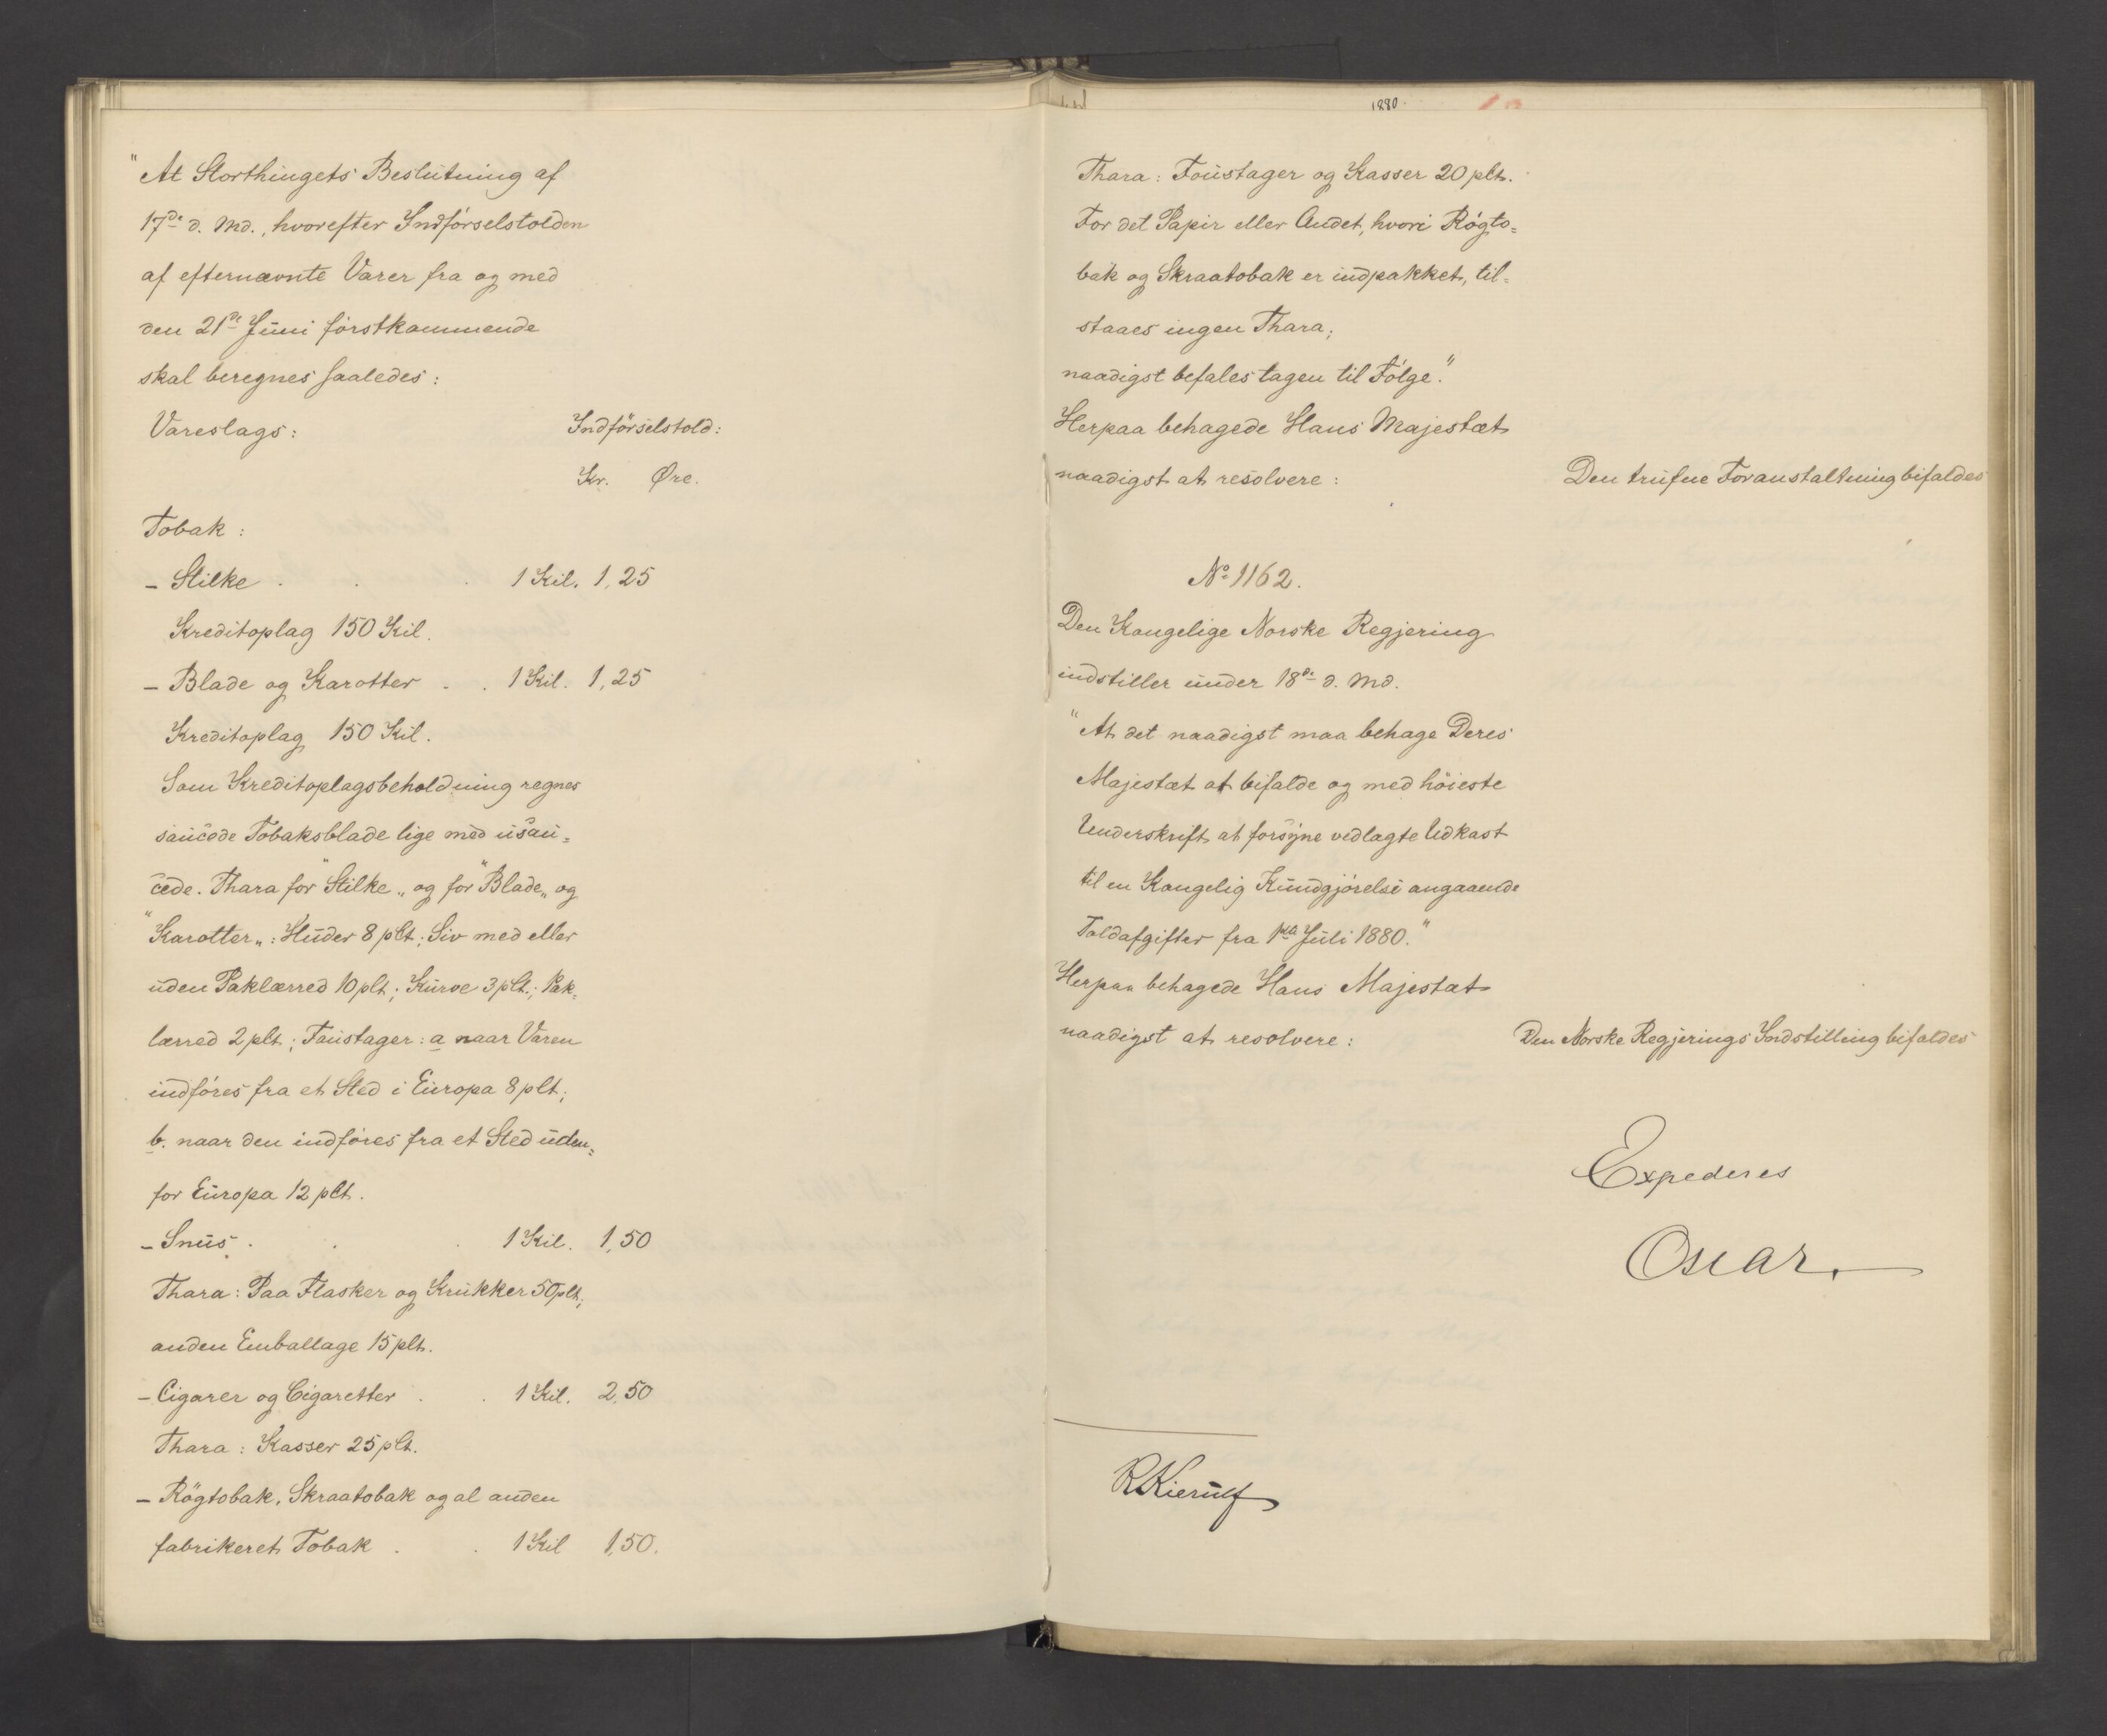 "At Storthingets Beslutning af
17de d. Md., hvorefter Indførselstolden
af efternævnte Varer fra og med
den 21de Juni förstkommende
skal beregnes saaledes:
Vareslags: Indførselstold:
Kr. Øre.
Tobak:
- Stilke . . . 1 Kil. 1,25
Kreditoplag 150 Kil.
- Blade og Karotter . . 1 Kil. 1,25
Kreditoplag 150 Kil.
Som Kreditoplagsbeholdning regnes
saucede Tobaksblade lige med usau=
cede. Thara for "Stilke" og for "Blade" og
"Karotter": Huder 8 pCt.; Siv med eller
uden Paklærred 10 pCt.; Kurve 3 pCt.; Pak=
lærred 2 pCt.; Foustager: a naar Varen
indføres fra et Sted i Europa 8 pCt.;
b. naar den indføres fra et Sted uden=
for Europa 12 pCt.
- Snus . . . 1 Kil. 1,50
Thara: Paa Flasker og Krukker 50 pCt.;
anden Emballage 15 pCt.
- Cigarer og Cigaretter . . 1 Kil. 2,50
Thara: Kasser 25 pCt.
- Rögtobak, Skraatobak og al anden
fabrikeret Tobak . . 1 Kil 1,50.
1880.
Thara: Foustager og Kasser 20 pCt.
For det Papir eller Andet, hvori Røgto=
bak og Skraatobak er indpakket, til=
staaes ingen Thara;
naadigst befales tagen til Følge."
Herpaa behagede Hans Majestæt
naadigst at resolvere: Den trufne Foranstaltning bifaldes
No 1162.
Den Kongelige Norske Regjering
indstiller under 18de d. Md.
"At det naadigst maa behage Deres
Majestæt at bifalde og med höieste
Underskrift at forsyne vedlagte Udkast
til en Kongelig Kundgjørelse angaaende
Toldafgifter fra 1ste Juli 1880."
Herpaa behagede Hans Majestæt
naadigst at resolvere: Den Norske Regjerings Indstilling bifaldes
Expederes
Oscar.
RKierulf